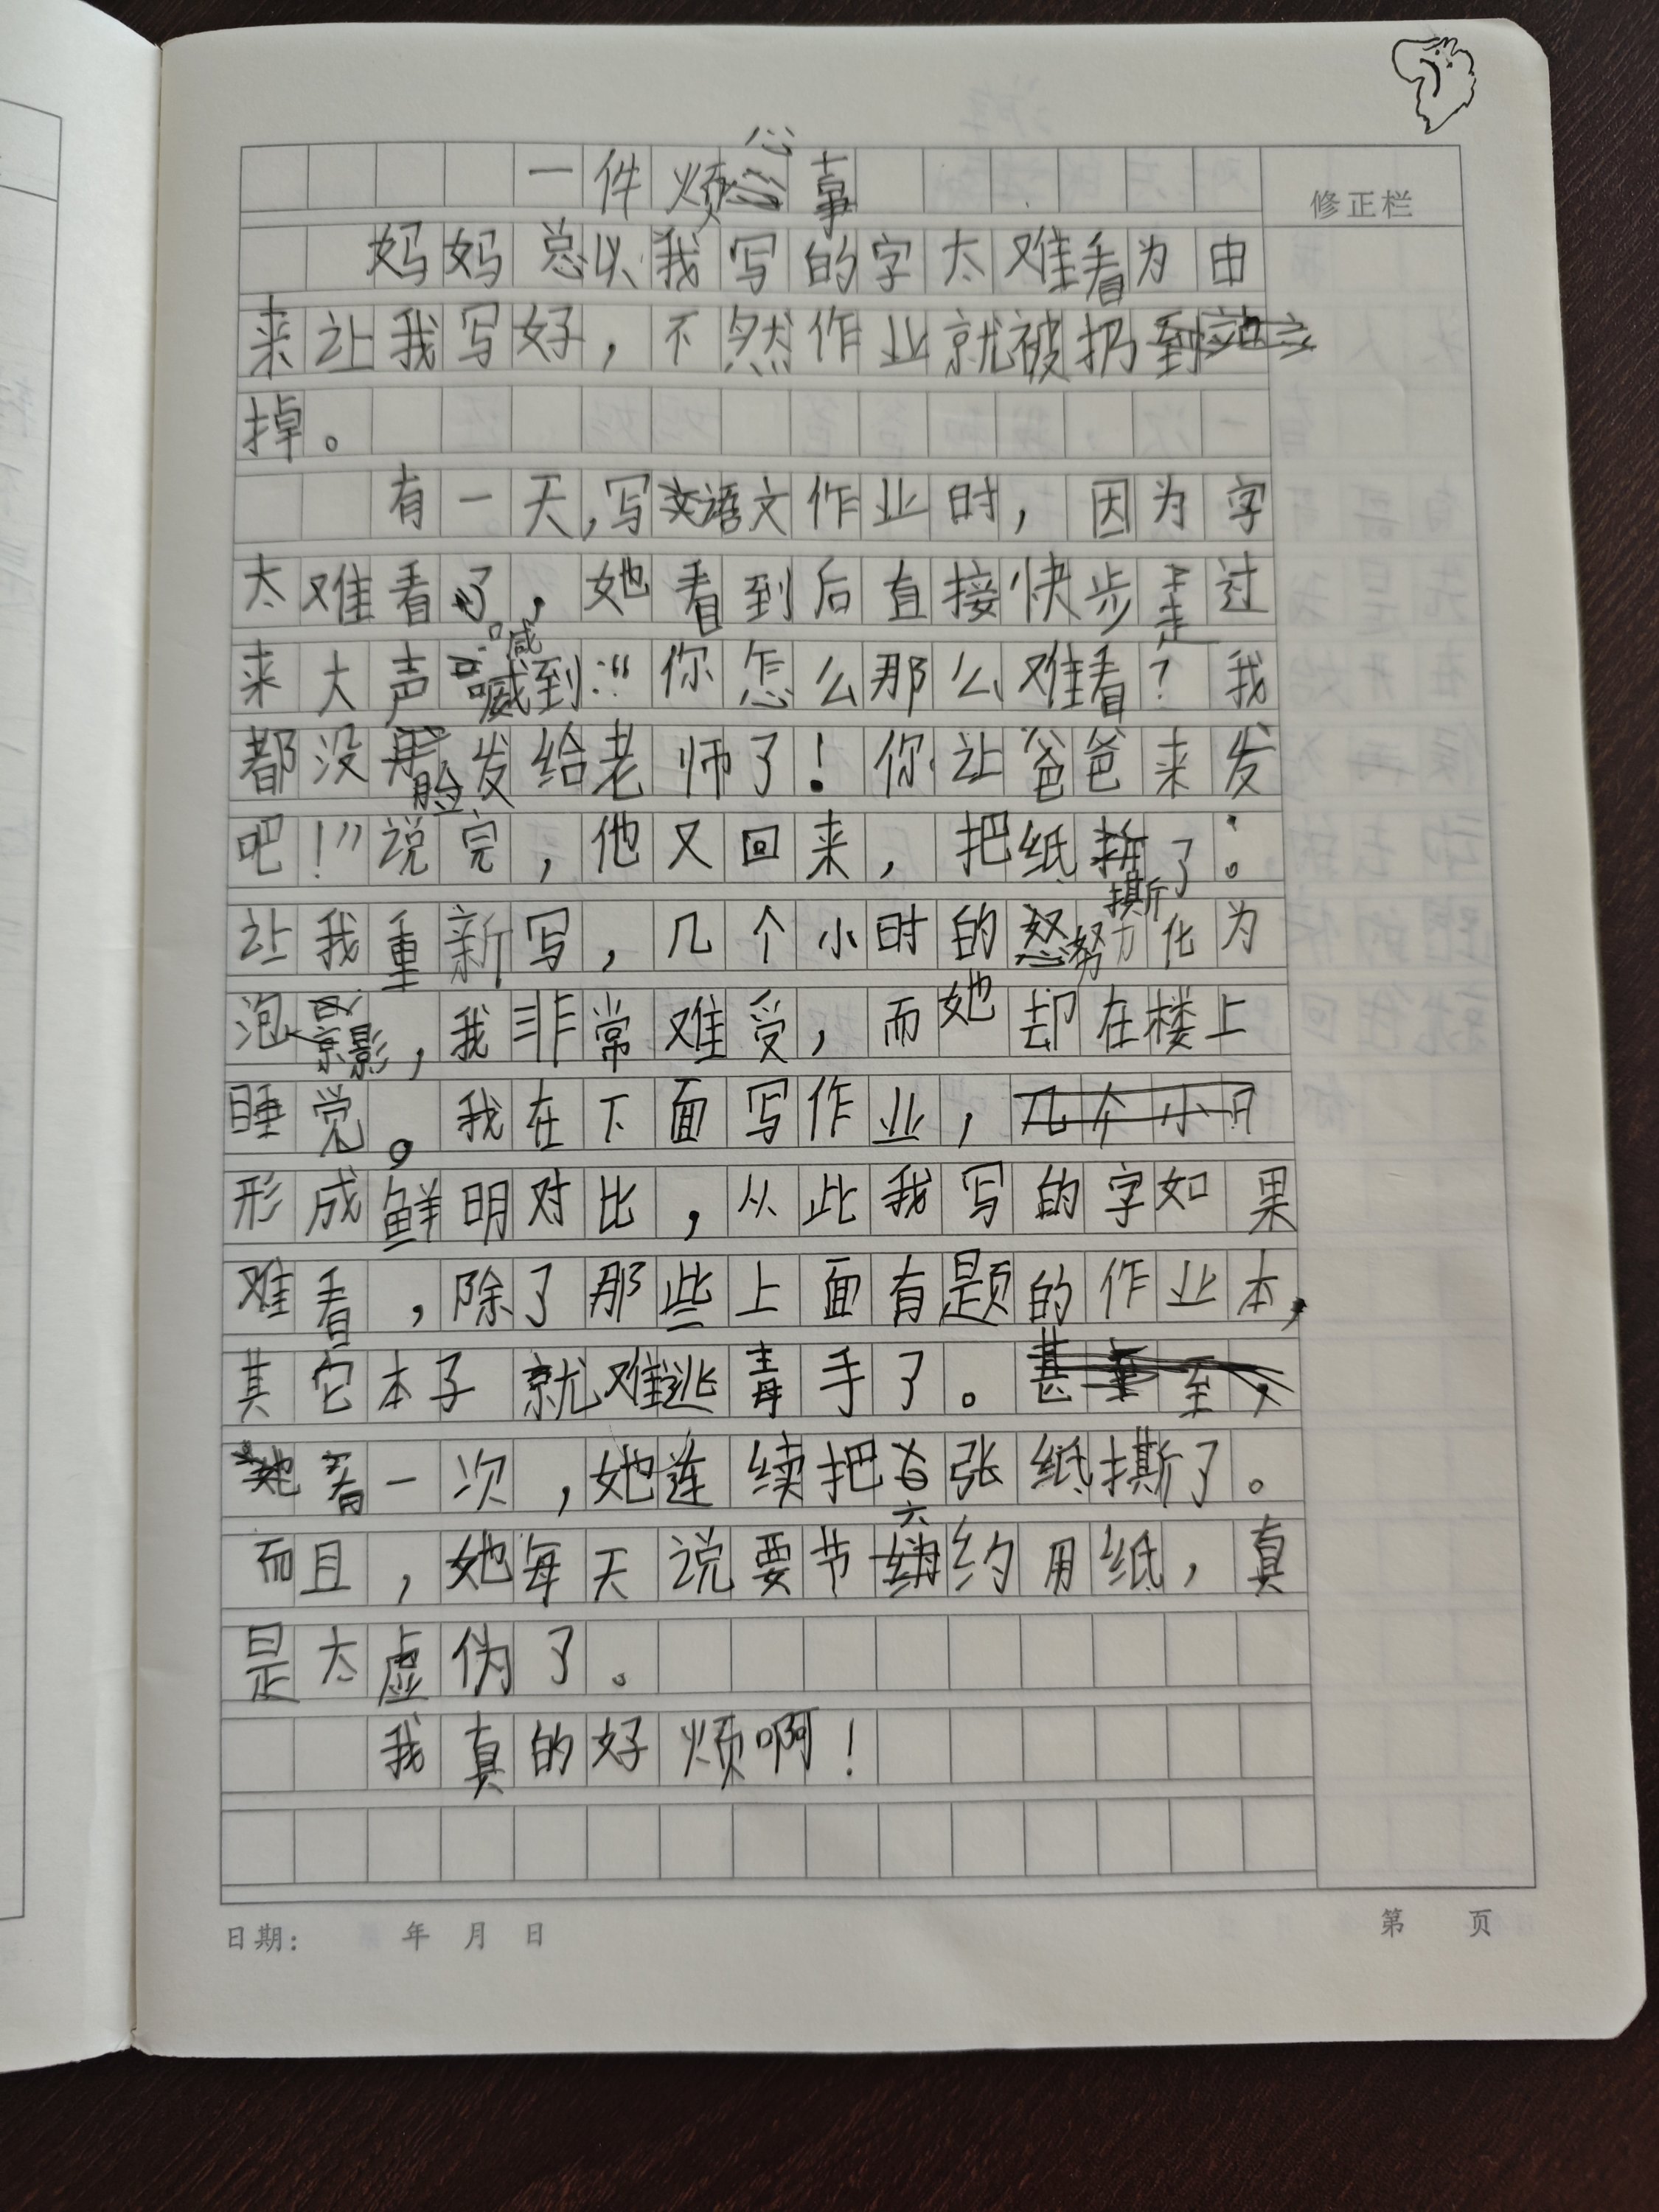 一件烦心事
修正栏
妈妈总以我写的字太难看为由
来让我写好，不然作业就被扔到
掉。
有一天，写语文作业时，因为字
太难看了，她看到后直接快步走过
来大声喊到：“你怎么那么难看？我
都没脸发给老师了！你让爸爸来发
吧！”说完，他又回来，把纸撕了。
让我重新写，几个小时的努力化为
泡影，我非常难受，而她却在楼上
睡觉。我在下面写作业，
形成鲜明对比，从此我写的字如果
难看，除了那些上面有题的作业本，
其它本子就难逃毒手了。
有一次，她连续把六张纸撕了。
而且，她每天说要节约用纸，真
是太虚伪了。
我真的好烦啊！
日期： 年 月 日
第 页